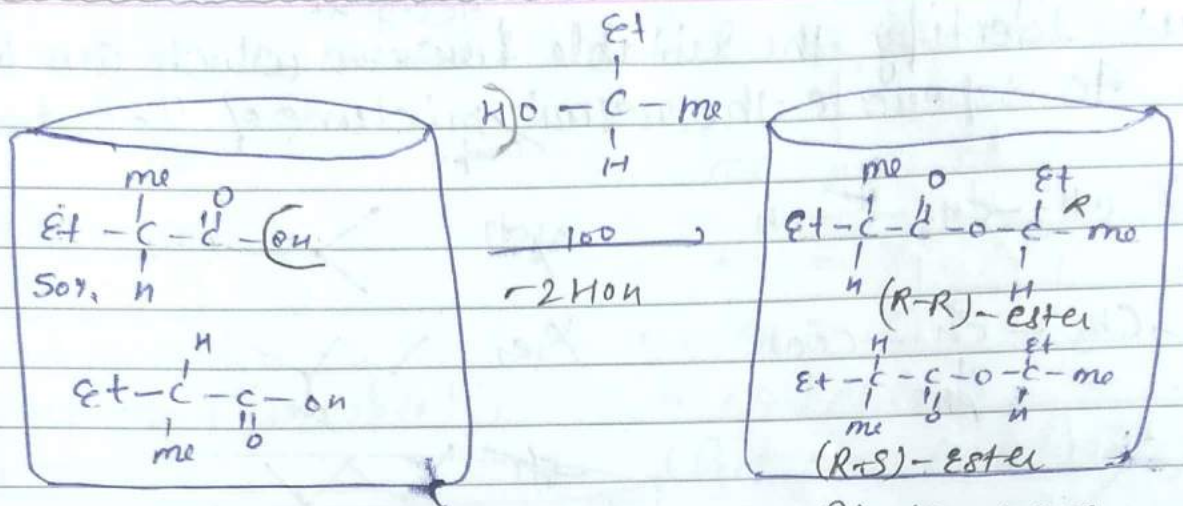 Et
HO — C — Me
H
me O
Et — C — C — OH
50%. H
H
Et — C — C — OH
me O
100
-2HOH
me O Et
Et — C — C — O — C — me
R
H H
(R-R) - Ester
H Et
Et — C — C — O — C — me
me O H
(R+S) - Ester